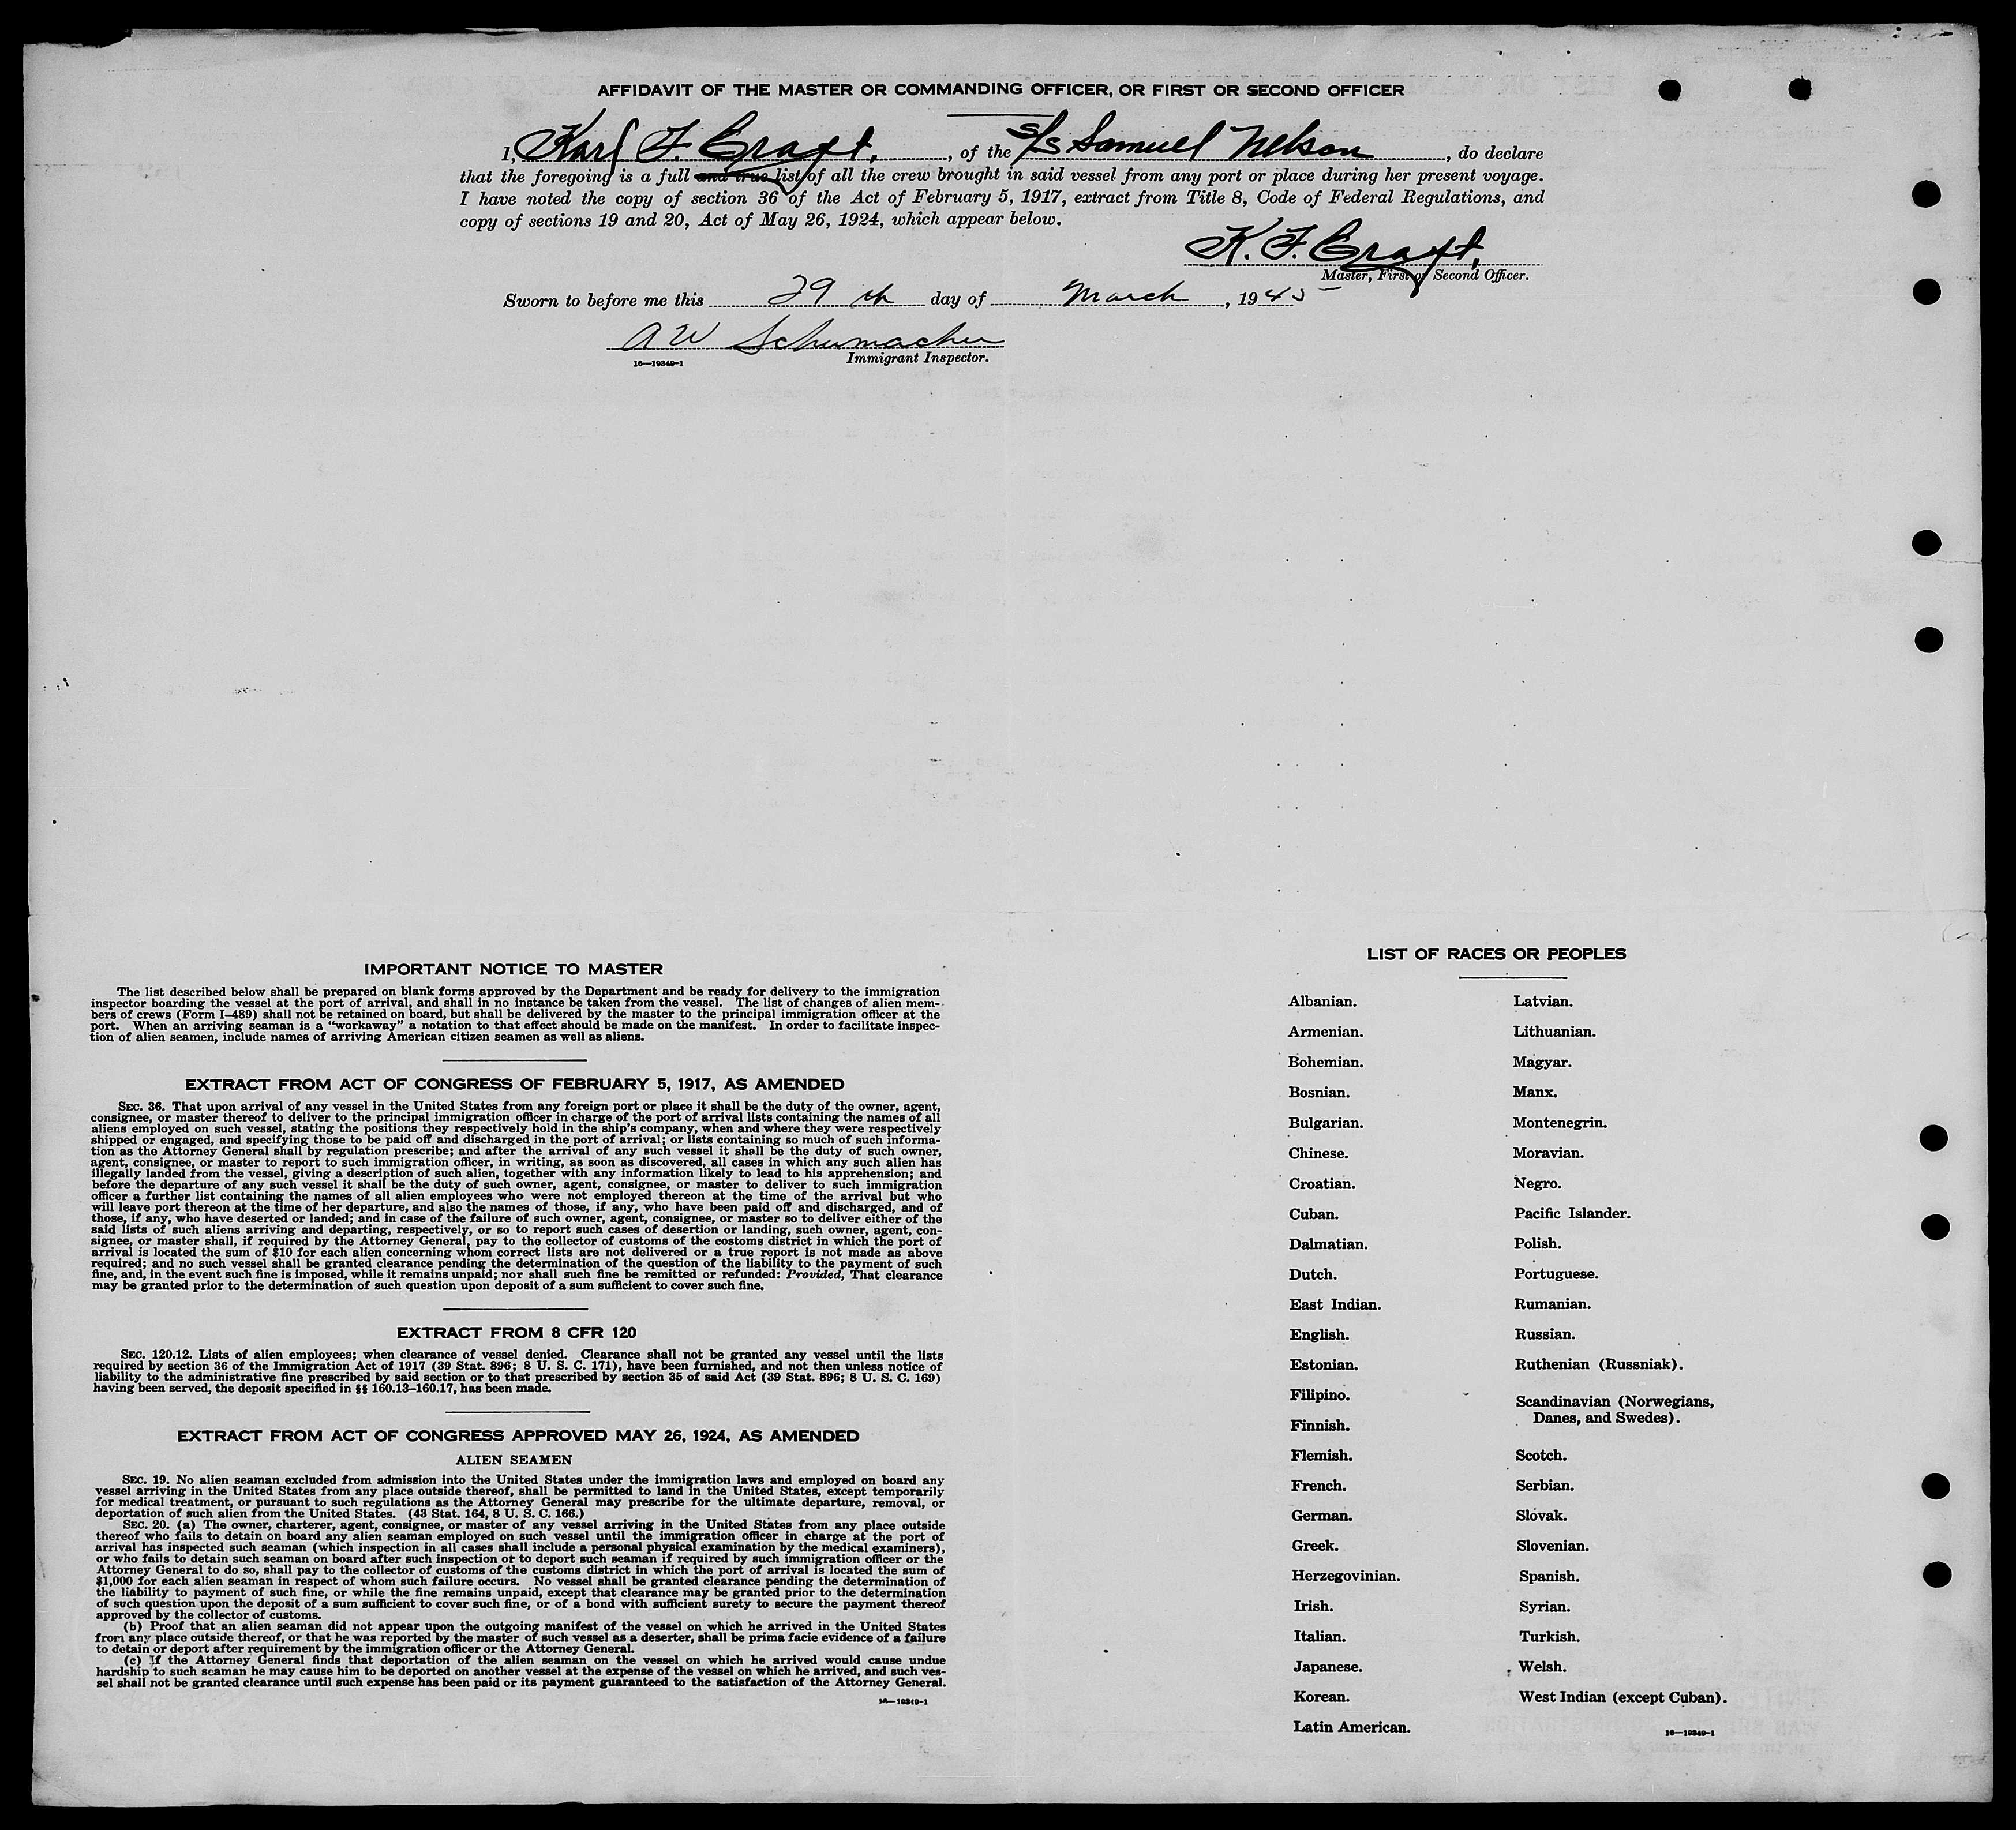 AFFIDAVIT OF THE MASTER OR COMMANDING OFFICER, OR FIRST OR SECOND OFFICER
I, Karl F. Craft, of the S/S Samuel Nelson, do declare
that the foregoing is a full and true list of all the crew brought in said vessel from any port or place during her present voyage.
I have noted the copy of section 36 of the Act of February 5, 1917, extract from Title 8, Code of Federal Regulations, and
copy of sections 19 and 20, Act of May 26, 1924, which appear below.
K. F. Craft,
Master, First or Second Officer.
Sworn to before me this 29 th day of March, 1945
A W Schumacher
16—19349-1 Immigrant Inspector.
IMPORTANT NOTICE TO MASTER
The list described below shall be prepared on blank forms approved by the Department and be ready for delivery to the immigration
inspector boarding the vessel at the port of arrival, and shall in no instance be taken from the vessel. The list of changes of alien mem-
bers of crews (Form I-489) shall not be retained on board, but shall be delivered by the master to the principal immigration officer at the
port. When an arriving seaman is a "workaway" a notation to that effect should be made on the manifest. In order to facilitate inspec-
tion of alien seamen, include names of arriving American citizen seamen as well as aliens.
EXTRACT FROM ACT OF CONGRESS OF FEBRUARY 5, 1917, AS AMENDED
SEC. 36. That upon arrival of any vessel in the United States from any foreign port or place it shall be the duty of the owner, agent,
consignee, or master thereof to deliver to the principal immigration officer in charge of the port of arrival lists containing the names of all
aliens employed on such vessel, stating the positions they respectively hold in the ship's company, when and where they were respectively
shipped or engaged, and specifying those to be paid off and discharged in the port of arrival; or lists containing so much of such informa-
tion as the Attorney General shall by regulation prescribe; and after the arrival of any such vessel it shall be the duty of such owner,
agent, consignee, or master to report to such immigration officer, in writing, as soon as discovered, all cases in which any such alien has
illegally landed from the vessel, giving a description of such alien, together with any information likely to lead to his apprehension; and
before the departure of any such vessel it shall be the duty of such owner, agent, consignee, or master to deliver to such immigration
officer a further list containing the names of all alien employees who were not employed thereon at the time of the arrival but who
will leave port thereon at the time of her departure, and also the names of those, if any, who have been paid off and discharged, and of
those, if any, who have deserted or landed; and in case of the failure of such owner, agent, consignee, or master so to deliver either of the
said lists of such aliens arriving and departing, respectively, or so to report such cases of desertion or landing, such owner, agent, con-
signee, or master shall, if required by the Attorney General, pay to the collector of customs of the costoms district in which the port of
arrival is located the sum of $10 for each alien concerning whom correct lists are not delivered or a true report is not made as above
required; and no such vessel shall be granted clearance pending the determination of the question of the liability to the payment of such
fine, and, in the event such fine is imposed, while it remains unpaid; nor shall such fine be remitted or refunded: Provided, That clearance
may be granted prior to the determination of such question upon deposit of a sum sufficient to cover such fine.
EXTRACT FROM 8 CFR 120
SEC. 120.12. Lists of alien employees; when clearance of vessel denied. Clearance shall not be granted any vessel until the lists
required by section 36 of the Immigration Act of 1917 (39 Stat. 896; 8 U. S. C. 171), have been furnished, and not then unless notice of
liability to the administrative fine prescribed by said section or to that prescribed by section 35 of said Act (39 Stat. 896; 8 U. S. C. 169)
having been served, the deposit specified in §§ 160.13–160.17, has been made.
EXTRACT FROM ACT OF CONGRESS APPROVED MAY 26, 1924, AS AMENDED
ALIEN SEAMEN
SEC. 19. No alien seaman excluded from admission into the United States under the immigration laws and employed on board any
vessel arriving in the United States from any place outside thereof, shall be permitted to land in the United States, except temporarily
for medical treatment, or pursuant to such regulations as the Attorney General may prescribe for the ultimate departure, removal, or
deportation of such alien from the United States. (43 Stat. 164, 8 U. S. C. 166.)
SEC. 20. (a) The owner, charterer, agent, consignee, or master of any vessel arriving in the United States from any place outside
thereof who fails to detain on board any alien seaman employed on such vessel until the immigration officer in charge at the port of
arrival has inspected such seaman (which inspection in all cases shall include a personal physical examination by the medical examiners),
or who fails to detain such seaman on board after such inspection or to deport such seaman if required by such immigration officer or the
Attorney General to do so, shall pay to the collector of customs of the customs district in which the port of arrival is located the sum of
$1,000 for each alien seaman in respect of whom such failure occurs. No vessel shall be granted clearance pending the determination of
the liability to the payment of such fine, or while the fine remains unpaid, except that clearance may be granted prior to the determination
of such question upon the deposit of a sum sufficient to cover such fine, or of a bond with sufficient surety to secure the payment thereof
approved by the collector of customs.
(b) Proof that an alien seaman did not appear upon the outgoing manifest of the vessel on which he arrived in the United States
from any place outside thereof, or that he was reported by the master of such vessel as a deserter, shall be prima facie evidence of a failure
to detain or deport after requirement by the immigration officer or the Attorney General.
(c) If the Attorney General finds that deportation of the alien seaman on the vessel on which he arrived would cause undue
hardship to such seaman he may cause him to be deported on another vessel at the expense of the vessel on which he arrived, and such ves-
sel shall not be granted clearance until such expense has been paid or its payment guaranteed to the satisfaction of the Attorney General.
16—19349-1
LIST OF RACES OR PEOPLES
Albanian.
Armenian.
Bohemian.
Bosnian.
Bulgarian.
Chinese.
Croatian.
Cuban.
Dalmatian.
Dutch.
East Indian.
English.
Estonian.
Filipino.
Finnish.
Flemish.
French.
German.
Greek.
Herzegovinian.
Irish.
Italian.
Japanese.
Korean.
Latin American.
Latvian.
Lithuanian.
Magyar.
Manx.
Montenegrin.
Moravian.
Negro.
Pacific Islander.
Polish.
Portuguese.
Rumanian.
Russian.
Ruthenian (Russniak).
Scandinavian (Norwegians,
Danes, and Swedes).
Scotch.
Serbian.
Slovak.
Slovenian.
Spanish.
Syrian.
Turkish.
Welsh.
West Indian (except Cuban).
16—19349-1